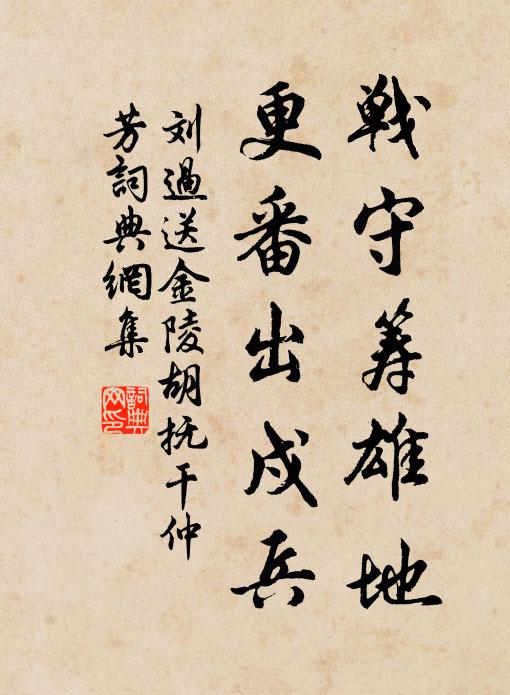 戦守筹雄地
更番出戍兵
刘過送金陵胡抚干仲
芳詞典網集
詞典网印